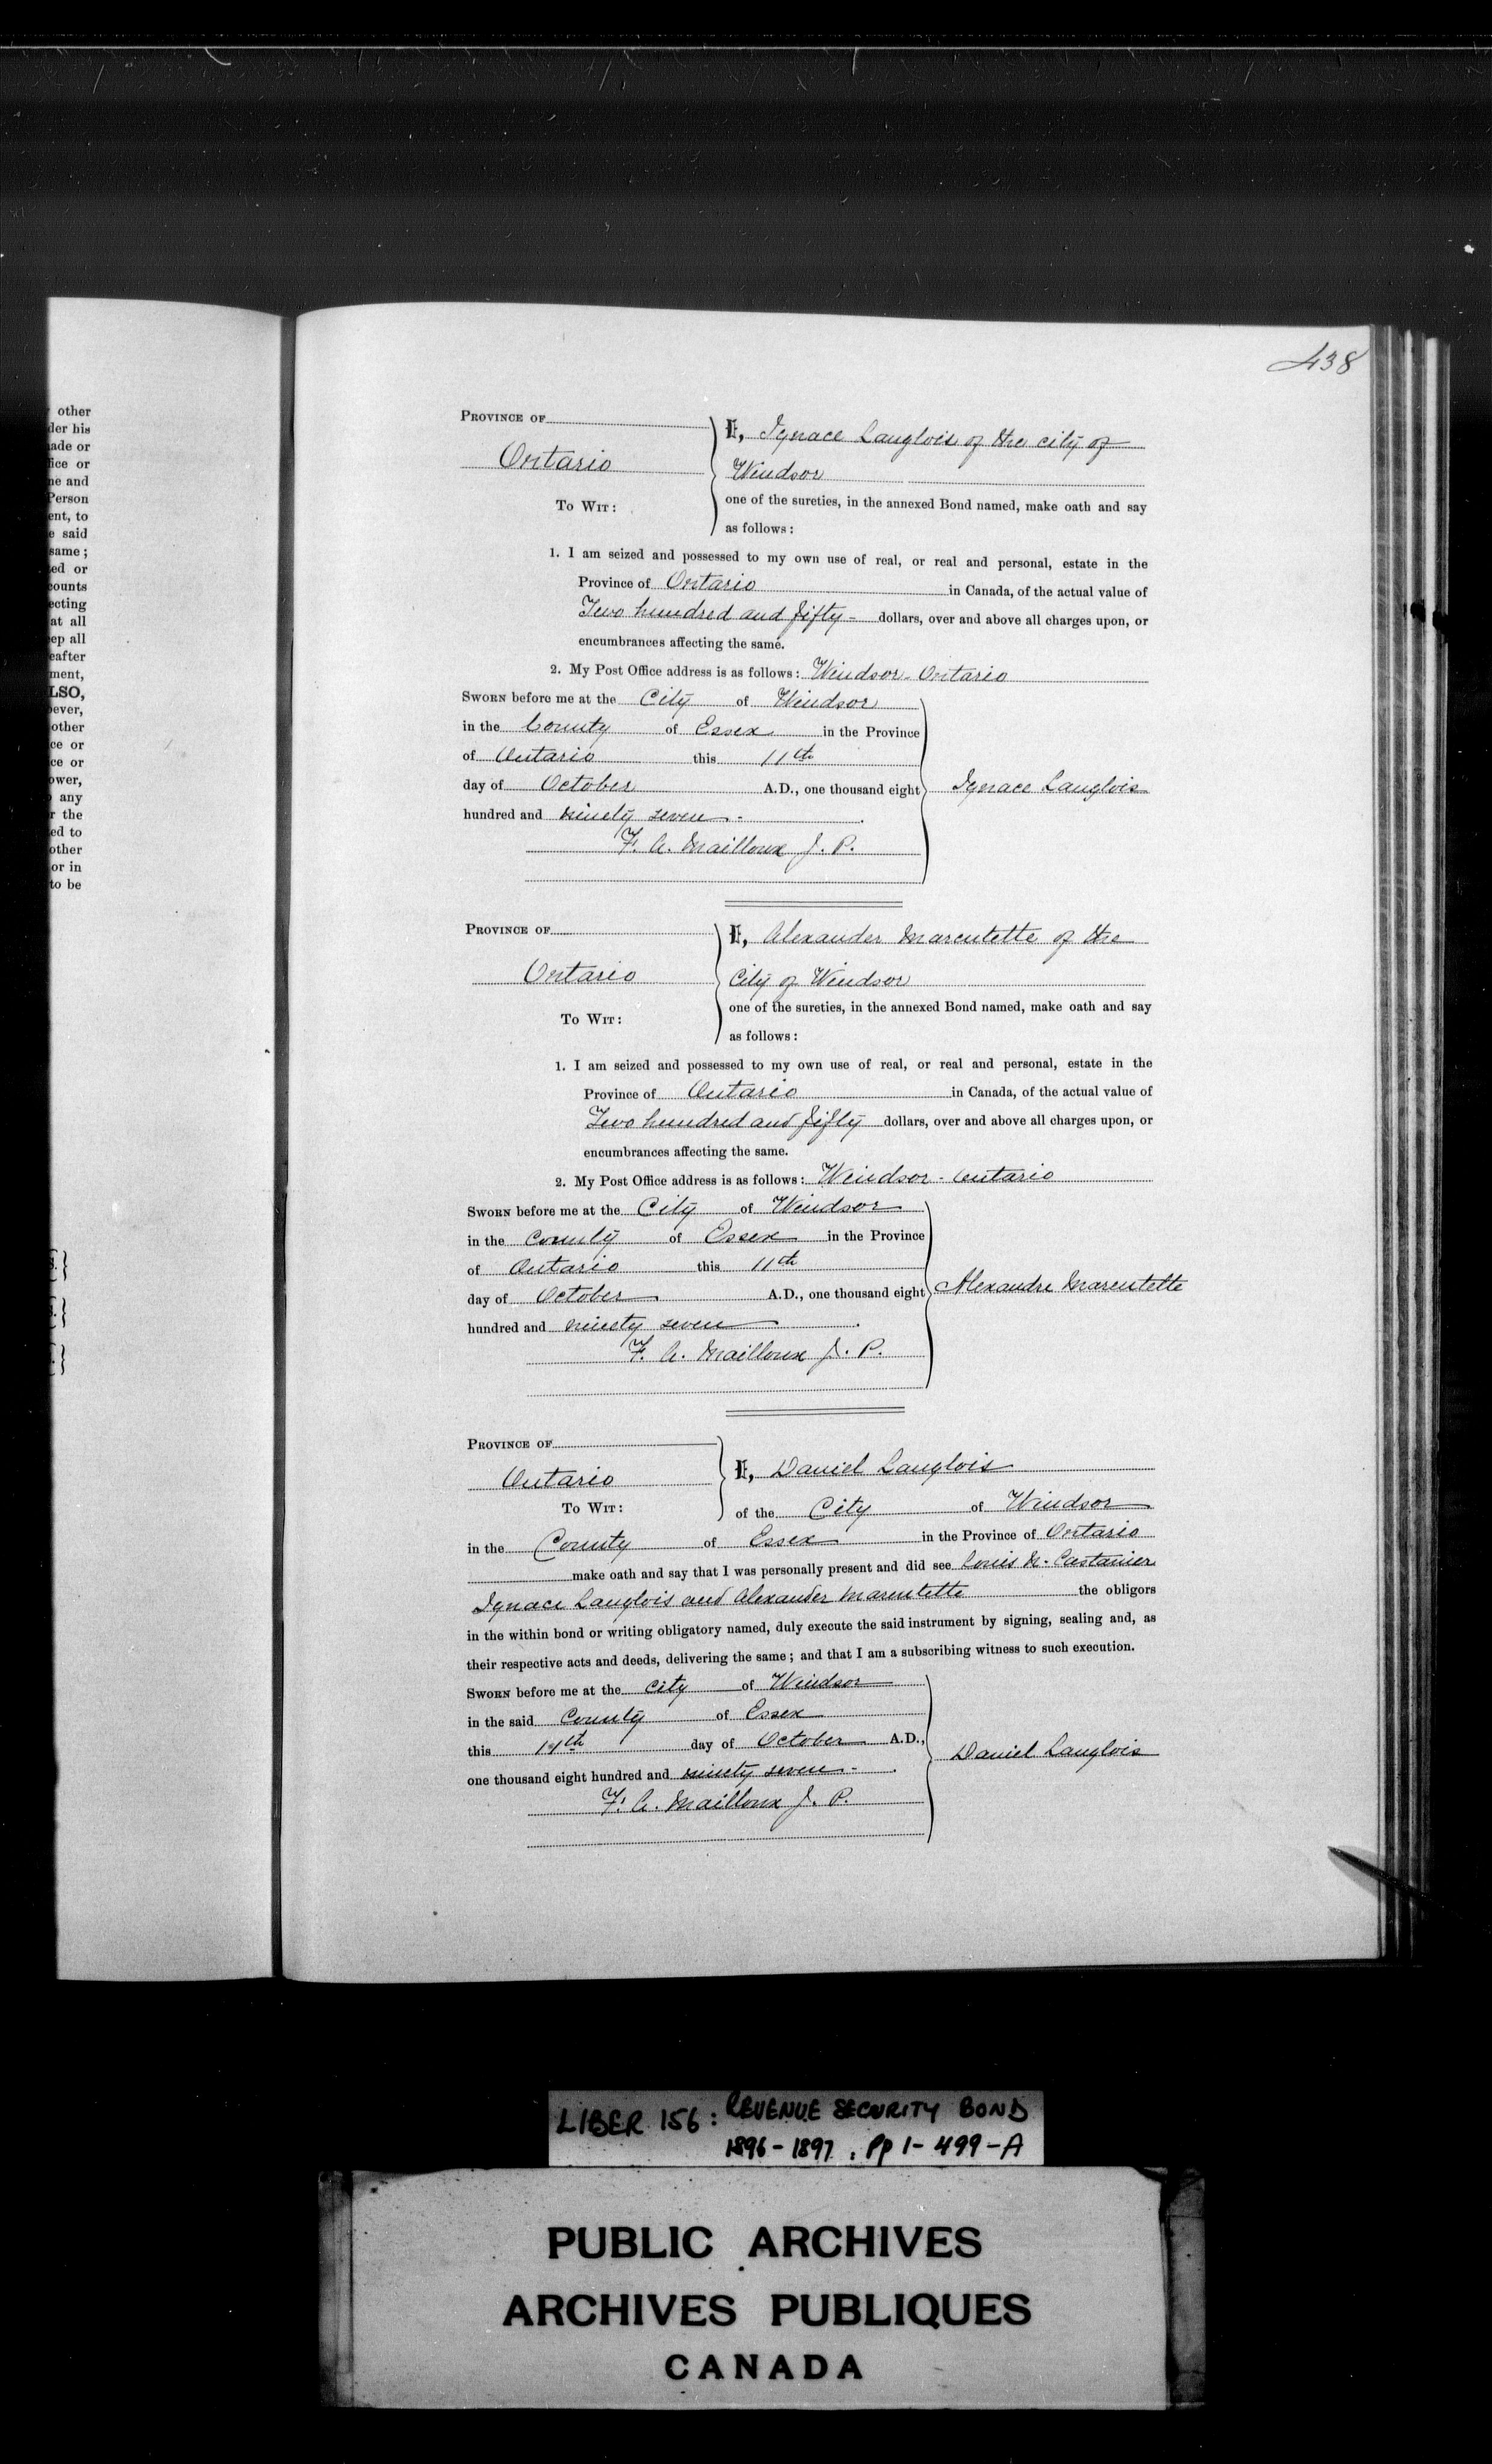 438
other
der his
ade or
ice or
ne and
Person
ent, to
e said
same;
ed or
counts
ecting
at all
ep all
eafter
ment,
LSO,
ever,
other
ce or
ce or
ower,
any
r the
ed to
other
or in
to be
PROVINCE OF
Ontario
TO WIT:
I, Ignace Langlois of the city of
Windsor
one of the sureties, in the annexed Bond named, make oath and say
as follows:
1. I am seized and possessed to my own use of real, or real and personal, estate in the
Province of Ontario in Canada, of the actual value of
Two hundred and fifty - dollars, over and above all charges upon, or
encumbrances affecting the same.
2. My Post Office address is as follows: Windsor - Ontario
SWORN before me at the City of Windsor
in the County of Essex in the Province
of Ontario this 11th
day of October A.D., one thousand eight
hundred and ninety seven -
F. A. Mailloux J. P.
Ignace Langlois
PROVINCE OF
Ontario
TO WIT:
I, Alexander Marentette of the
City of Windsor
one of the sureties, in the annexed Bond named, make oath and say
as follows:
1. I am seized and possessed to my own use of real, or real and personal, estate in the
Province of Ontario in Canada, of the actual value of
Two hundred and fifty dollars, over and above all charges upon, or
encumbrances affecting the same.
2. My Post Office address is as follows: Windsor - Ontario
SWORN before me at the City of Windsor
in the County of Essex in the Province
of Ontario this 11th
day of October A.D., one thousand eight
hundred and ninety seven
F. A. Mailloux J. P.
Alexandre Marentette
PROVINCE OF
Ontario
TO WIT:
I, Daniel Langlois
of the City of Windsor
in the County of Essex in the Province of Ontario
make oath and say that I was personally present and did see Louis N. Castanier
Ignace Langlois and Alexander Marentette the obligors
in the within bond or writing obligatory named, duly execute the said instrument by signing, sealing and, as
their respective acts and deeds, delivering the same; and that I am a subscribing witness to such execution.
SWORN before me at the City of Windsor
in the said County of Essex
this day of October A.D.,
one thousand eight hundred and ninety seven -
F. A. Mailloux J. P.
Daniel Langlois
LIBER 156: REVENUE SECURITY BOND
1896-1897, Pp 1-499-A
PUBLIC ARCHIVES
ARCHIVES PUBLIQUES
CANADA